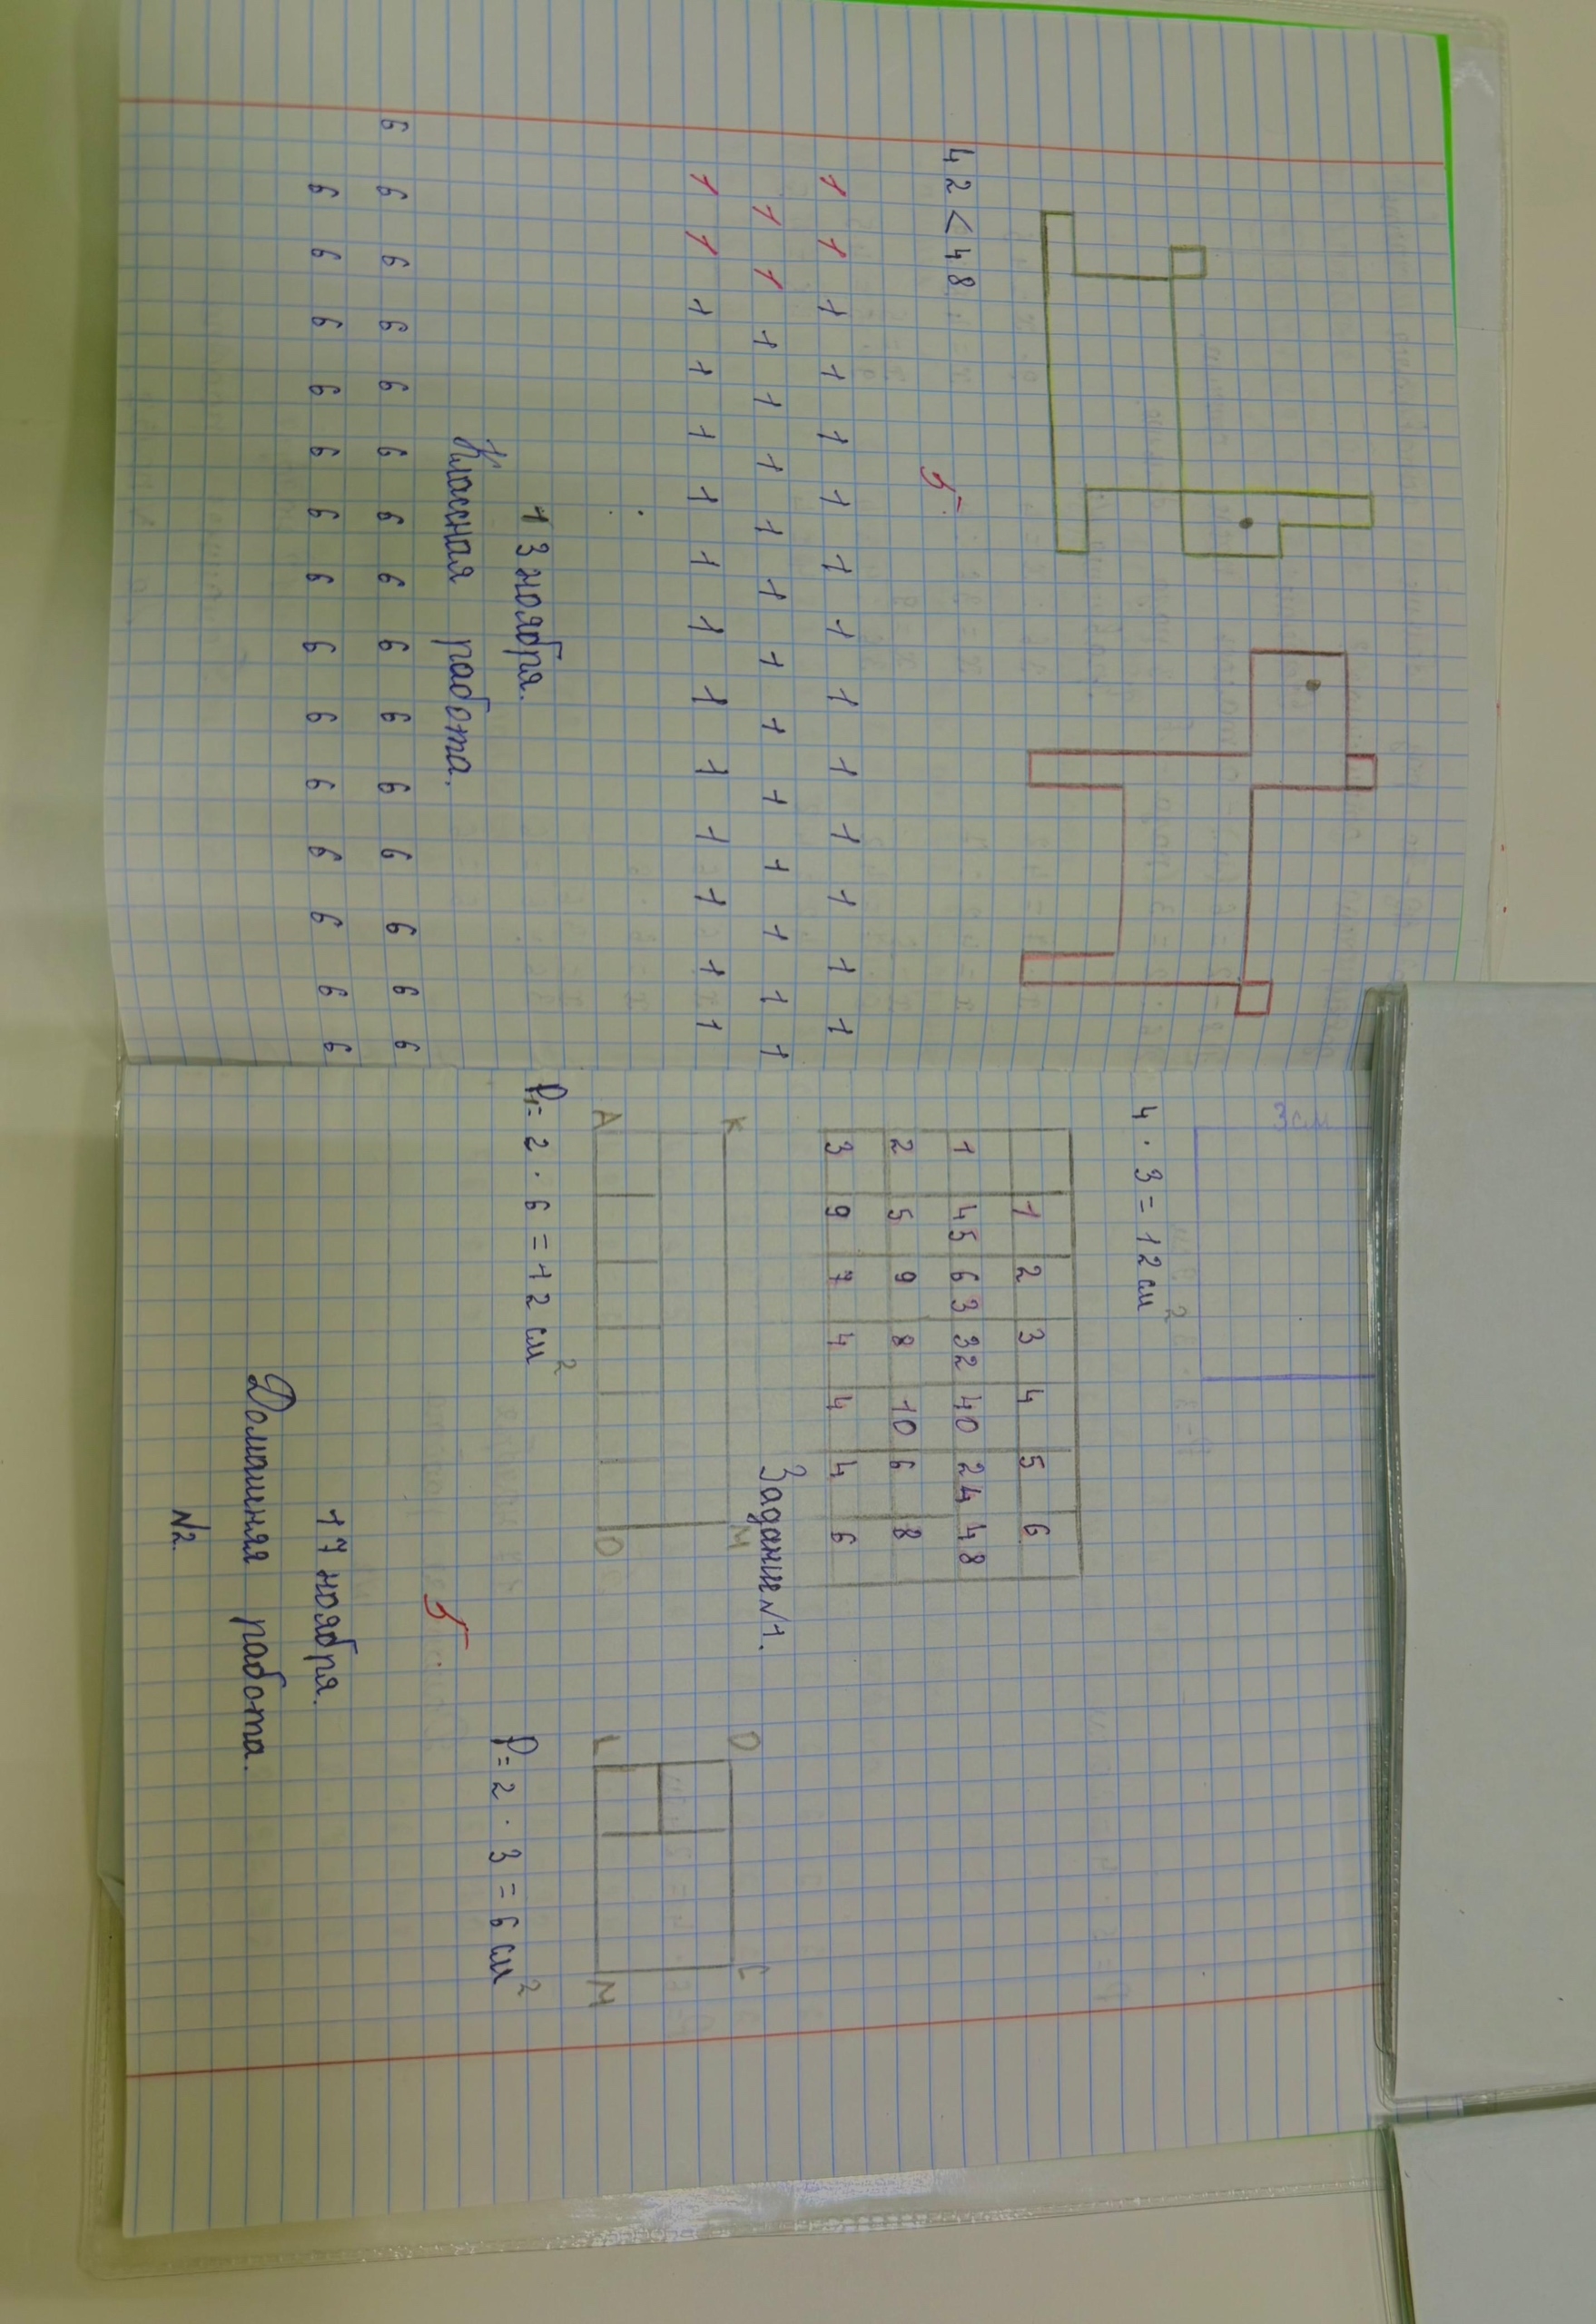 42<48
5
1 1 1 1 1 1 1 1 1 1 1 1 1 1
1 1 1 1 1 1 1 1 1 1 1 1 1 1
1 1 1 1 1 1 1 1 1 1 1 1 1 1
13 ноября.
Классная работа.
6 6 6 6 6 6 6 6 6 6 6 6 6 6 6
6 6 6 6 6 6 6 6 6 6 6 6 6 6
3см
4 · 3 = 12 см²
1 2 3 4 5 6
1 45 63 32 40 24 48
2 5 9 8 10 6 8
3 9 7 4 4 4 6
Задание №1.
K M D C
A D L M
P₁= 2 · 6 = 12 см² P= 2 · 3 = 6 см²
5
17 ноября.
Домашняя работа.
№2.